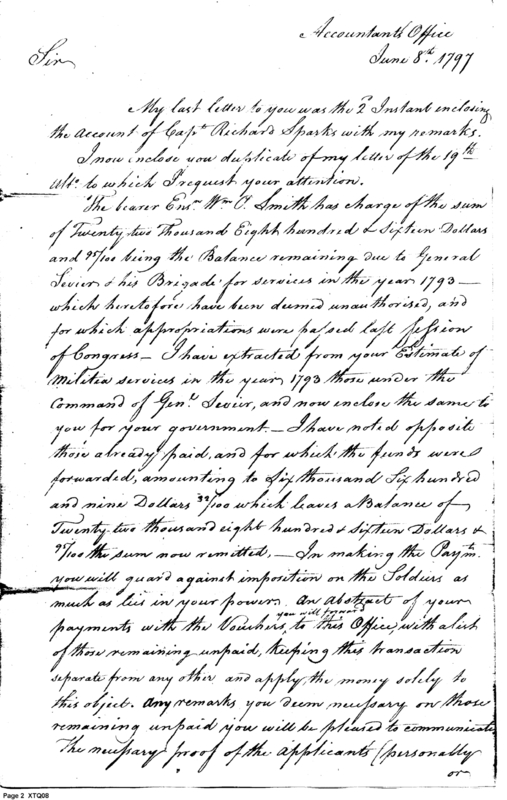 Accountants Office
June 8th. 1797
Sir
My last letter to you was the 2d Instant enclosing
the account of Capt. Richard Sparks with my remarks.
I now inclose you duplicate of my letter of the 19th
Ulto. to which I request your attention.
The bearer Ensn. Wm. C. Smith has charge of the sum
of Twenty two Thousand Eight hundred & Sixteen Dollars
and 95/100 being the Balance remaining due to General
Sevier & his Brigade for services in the year 1793 —
which heretofore have been deemed unauthorised, and
for which appropriations were passed last Session
of Congress — I have extracted from your Estimate of
Militia services in the year 1793 those under the
Command of Genl. Sevier, and now enclose the same to
you for your government — I have noted opposite
those already paid, and for which the funds were
forwarded, amounting to Six thousand Six hundred
and nine Dollars /100 which leaves a Balance of
Twenty two thousand eight hundred & Sixteen Dollars &
95/100 the sum now remitted, — In making the Paymts.
you will guard against imposition on the Soldiers as
much as lies in your power. An abstract of your
payments with the Vouchers, you will forward to this Office, with a list
of those remaining unpaid, keeping this transaction
separate from any other and apply the money solely to
this object. Any remarks you deem necessary on those
remaining unpaid you will be pleased to communicate
The necessary proof of the applicants (personally
or
Page 2 XTQ08